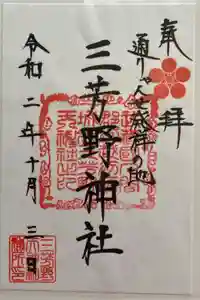 奉拝
通りゃんせ発祥の地
三芳野神社
令和二年十月三日